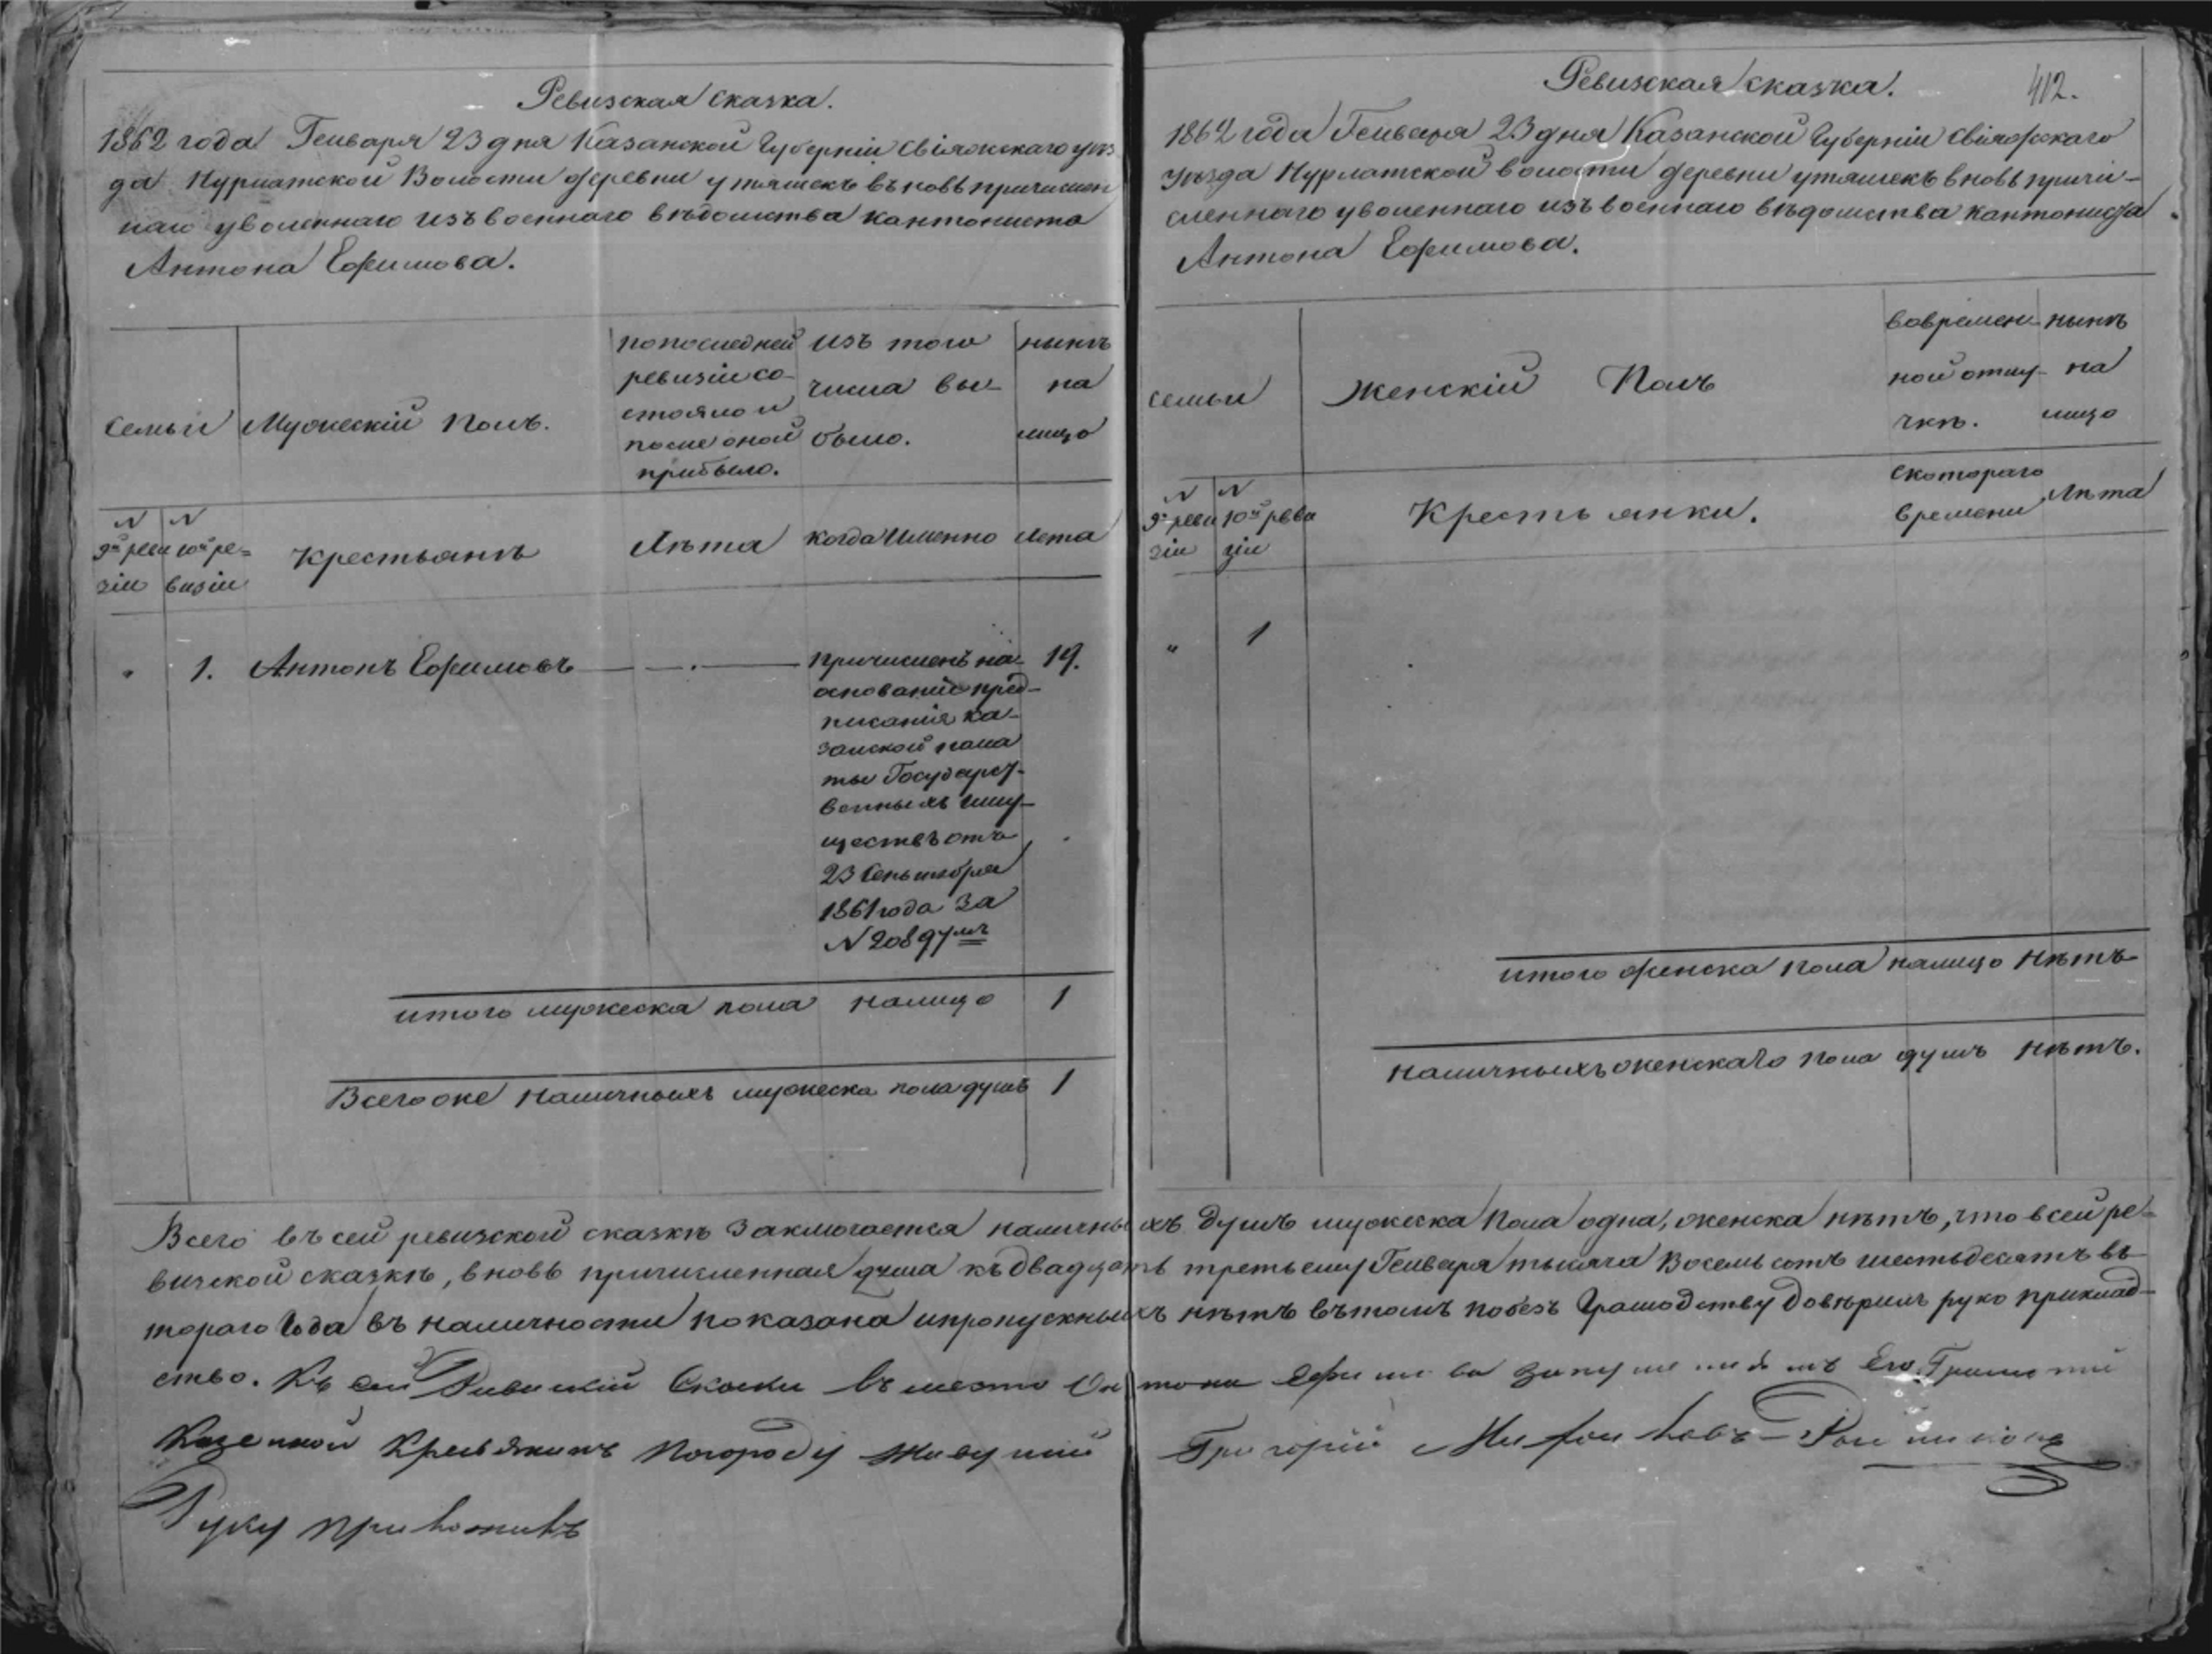 Ревизская сказка.
1862 года Генваря 23 дня Казанской Губерніи Свіяжскаго уѣз
да Нурлатской Волости деревни утяшекъ въновь причислен
наго уволеннаго изъ военнаго вѣдомства кантониста
Антона Ефимова.
семьи
Мужескій полъ.
попоследней
ревизіи со-
стояло и
после оной
прибыло.
изъ того
числа вы-
было.
нынѣ
на
лицо
N
9й реви
зіи
N
10й ре=
визіи
Крестьянъ
Лѣта
когда именно
лета
"
1.
Антонъ Ефимовъ
причисленъ на
основаніи пред-
писанія ка-
занской пала
ты Государст-
венныхъ иму-
ществъ отъ
23 Сентября
1861 года за
N 20897мъ
19.
итого мужеска пола налицо 1
Всегоже наличныхъ мужеска пола душъ 1
Ревизская сказка.
412.
1862 года Генваря 23 дня Казанской Губерніи Свіяжскаго
уѣзда Нурлатской волости деревни утяшекъ вновь причи-
сленнаго уволеннаго изъ военнаго вѣдомства кантониста
Антона Ефимова.
семьи
Женскій Полъ
вовремен-
ной отлу-
чкѣ.
нынѣ
на
лицо
N
9й реви
зіи
N
10й реви
зіи
Крестьянки.
скотораго
времени
Лѣта
"
1
итого женска пола налицо нѣтъ
наличныхъ женскаго пола душъ нѣтъ.
Всего въ сей ревизской сказкѣ заключается наличныхъ душъ мужеска пола одна, женска нѣтъ, что всей ре-
визской сказкѣ, вновь причисленная душа къ двадцать третьему Генваря тысяча восемь сотъ шестьдесятъ въ
тораго года въ наличности показана ипропускныхъ нѣтъ вътомъ побезъ Грамодству довѣрилъ руко приклад-
ство. Къ сей Ревиский Скаски въместо Онтона Ефимова Его
Крестьянинъ Григорій
Руку приложилъ